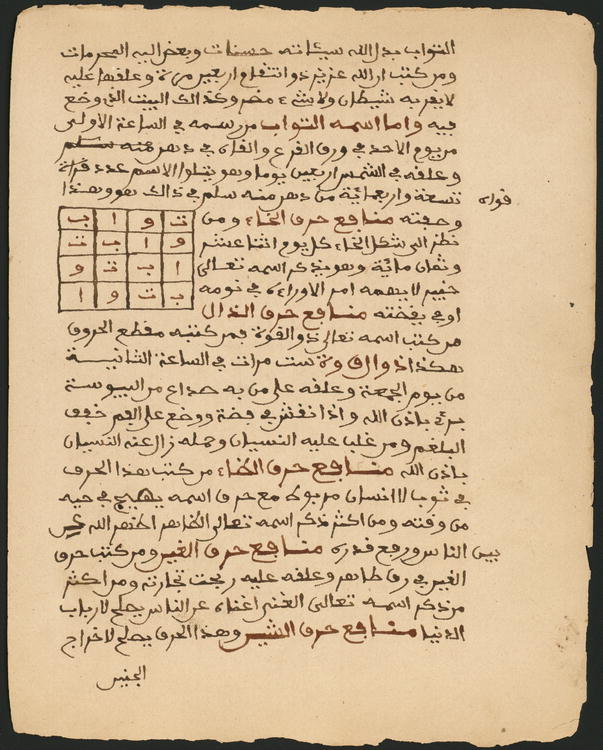 التواب بدل الله سيئاته حسنات وبغض اليه المحرمات
ومن كتب الله عزيز ذو انتقام اربعين مرة وعلقها عليه
لا يقربه شيطان ولا شيء مضر وكذالك البيت الذي وضع
فيه واما اسمه التواب من رسمه في الساعة الاولى
من يوم الاحد في ورق القرع والقاه في دهن
وعلقه في الشمس اربعين يوما وهو يتلوا الاسم عدد
تسعة واربعمائة من دهن منه سلم في ذالك هو وهذا
وحقته منافع حرف الخاء ومن
ت و ا ب
نظر الى شكل الخاء كل يوم اثنا عشر
و ا ب ت
وثمان مائة وهو يذكر اسمه تعالى
ا ب ت و
خبير لا يبهمه امر الا وراءه في نومه
ب ت و ا
او في يقظته منافع حرف الذال
من كتب اسمه تعالى ذو القوة فمن كتبه مقطع الحروف
هكذا ذ و ا ل ق و ة ست مرات في الساعة الثانية
من يوم الجمعة وعلقه على من به صداع من اليبوسة
برئ باذن الله واذا نقش في فضة ووضع على الفم خفف
البلغم ومن غلب عليه النسيان وحمله زال عنه النسيان
باذن الله منافع حرف الظاء من كتب هذا الحرف
في ثوب لانسان مربوط مع حرف اسمه يهيج في حبه
من وقته ومن اكثر ذكر اسمه تعالى الظاهر اظهر الله
بين الناس ورفع قدره منافع حرف الغين ومن كتب حرف
الغين في رق طاهر وعلقه عليه ربحت تجارته ومن اكثر
من ذكر اسمه تعالى الغني اغناه عن الناس يصلح لارباب
الدنيا منافع حرف الشين وهذا الحرف يصلح لاخراج
الجنين